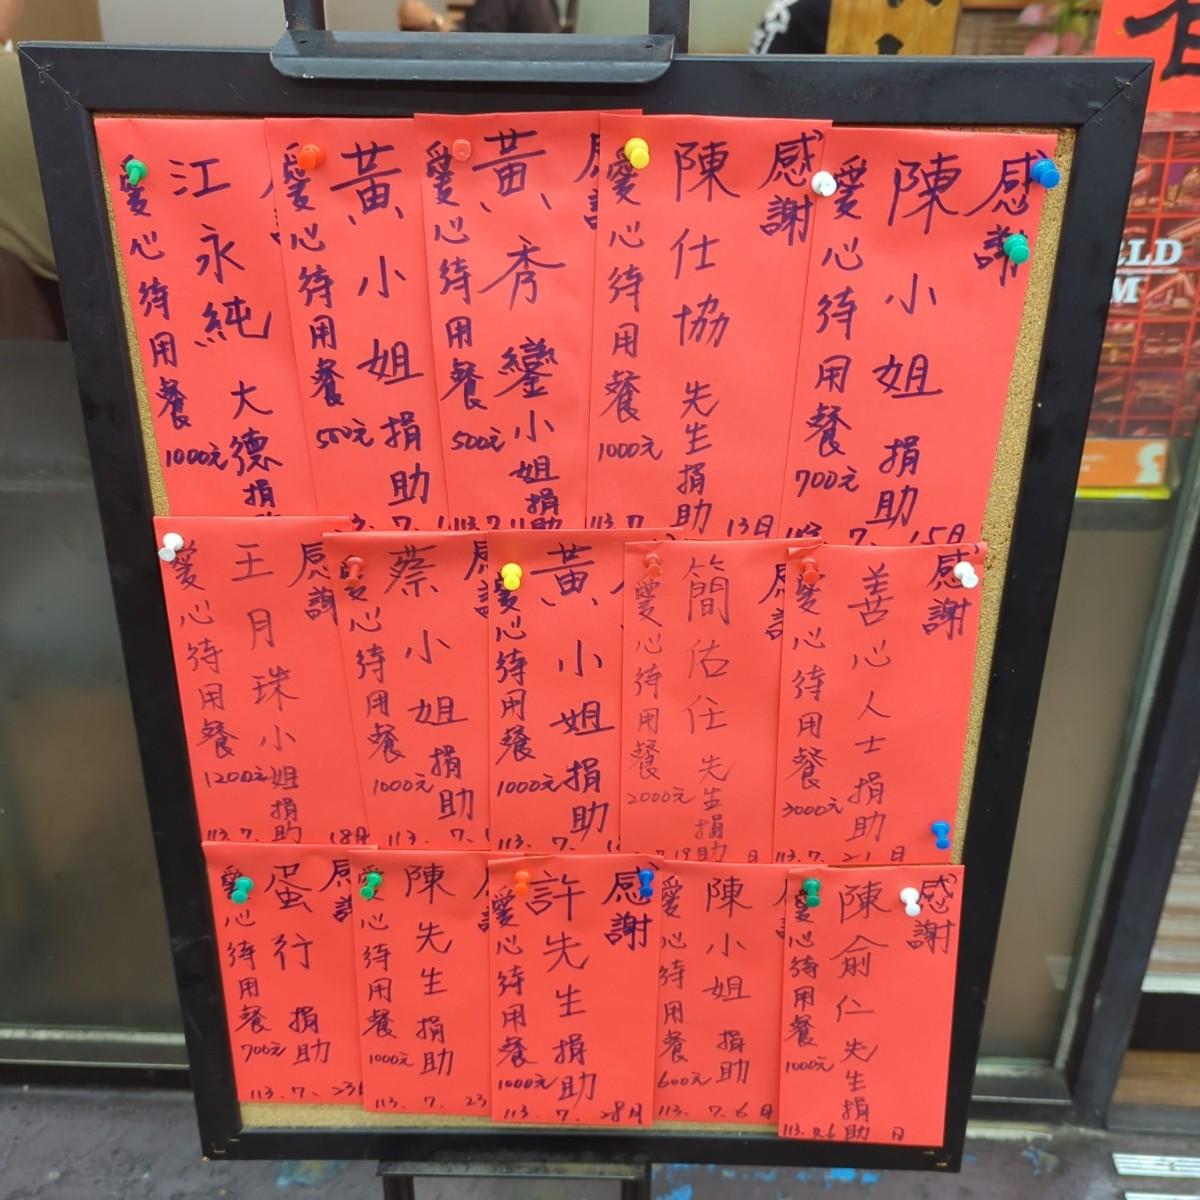 感謝
陳小姐 捐助
愛心待用餐
700元
113. 7. 15日
感謝
陳仕協 先生捐助
愛心待用餐
1000元
113. 7. 13日
黃秀鑾小姐捐助
愛心待用餐
500元
黃小姐捐助
愛心待用餐
500元
江永純 大德捐
愛心待用餐
1000元
感謝
善心人士捐助
愛心待用餐
3000元
113.7. 21日
簡佑任 先生捐助
愛心待用餐
2000元
黃小姐捐助
愛心待用餐
1000元
113. 7.
感謝
蔡小姐捐助
愛心待用餐
1000元
113. 7.
感謝
王月珠小姐捐助
愛心待用餐
1200元
113. 7. 18日
感謝
陳俞仁先生捐助
愛心待用餐
1000元
113. 7.6 日
陳小姐 捐助
愛心待用餐
600元
113. 7. 6日
感謝
許先生捐助
愛心待用餐
1000元
113. 7. 28日
陳先生捐助
愛心待用餐
1000元
113. 7. 23
感謝
蛋行 捐助
愛心待用餐
700元
113. 7. 23